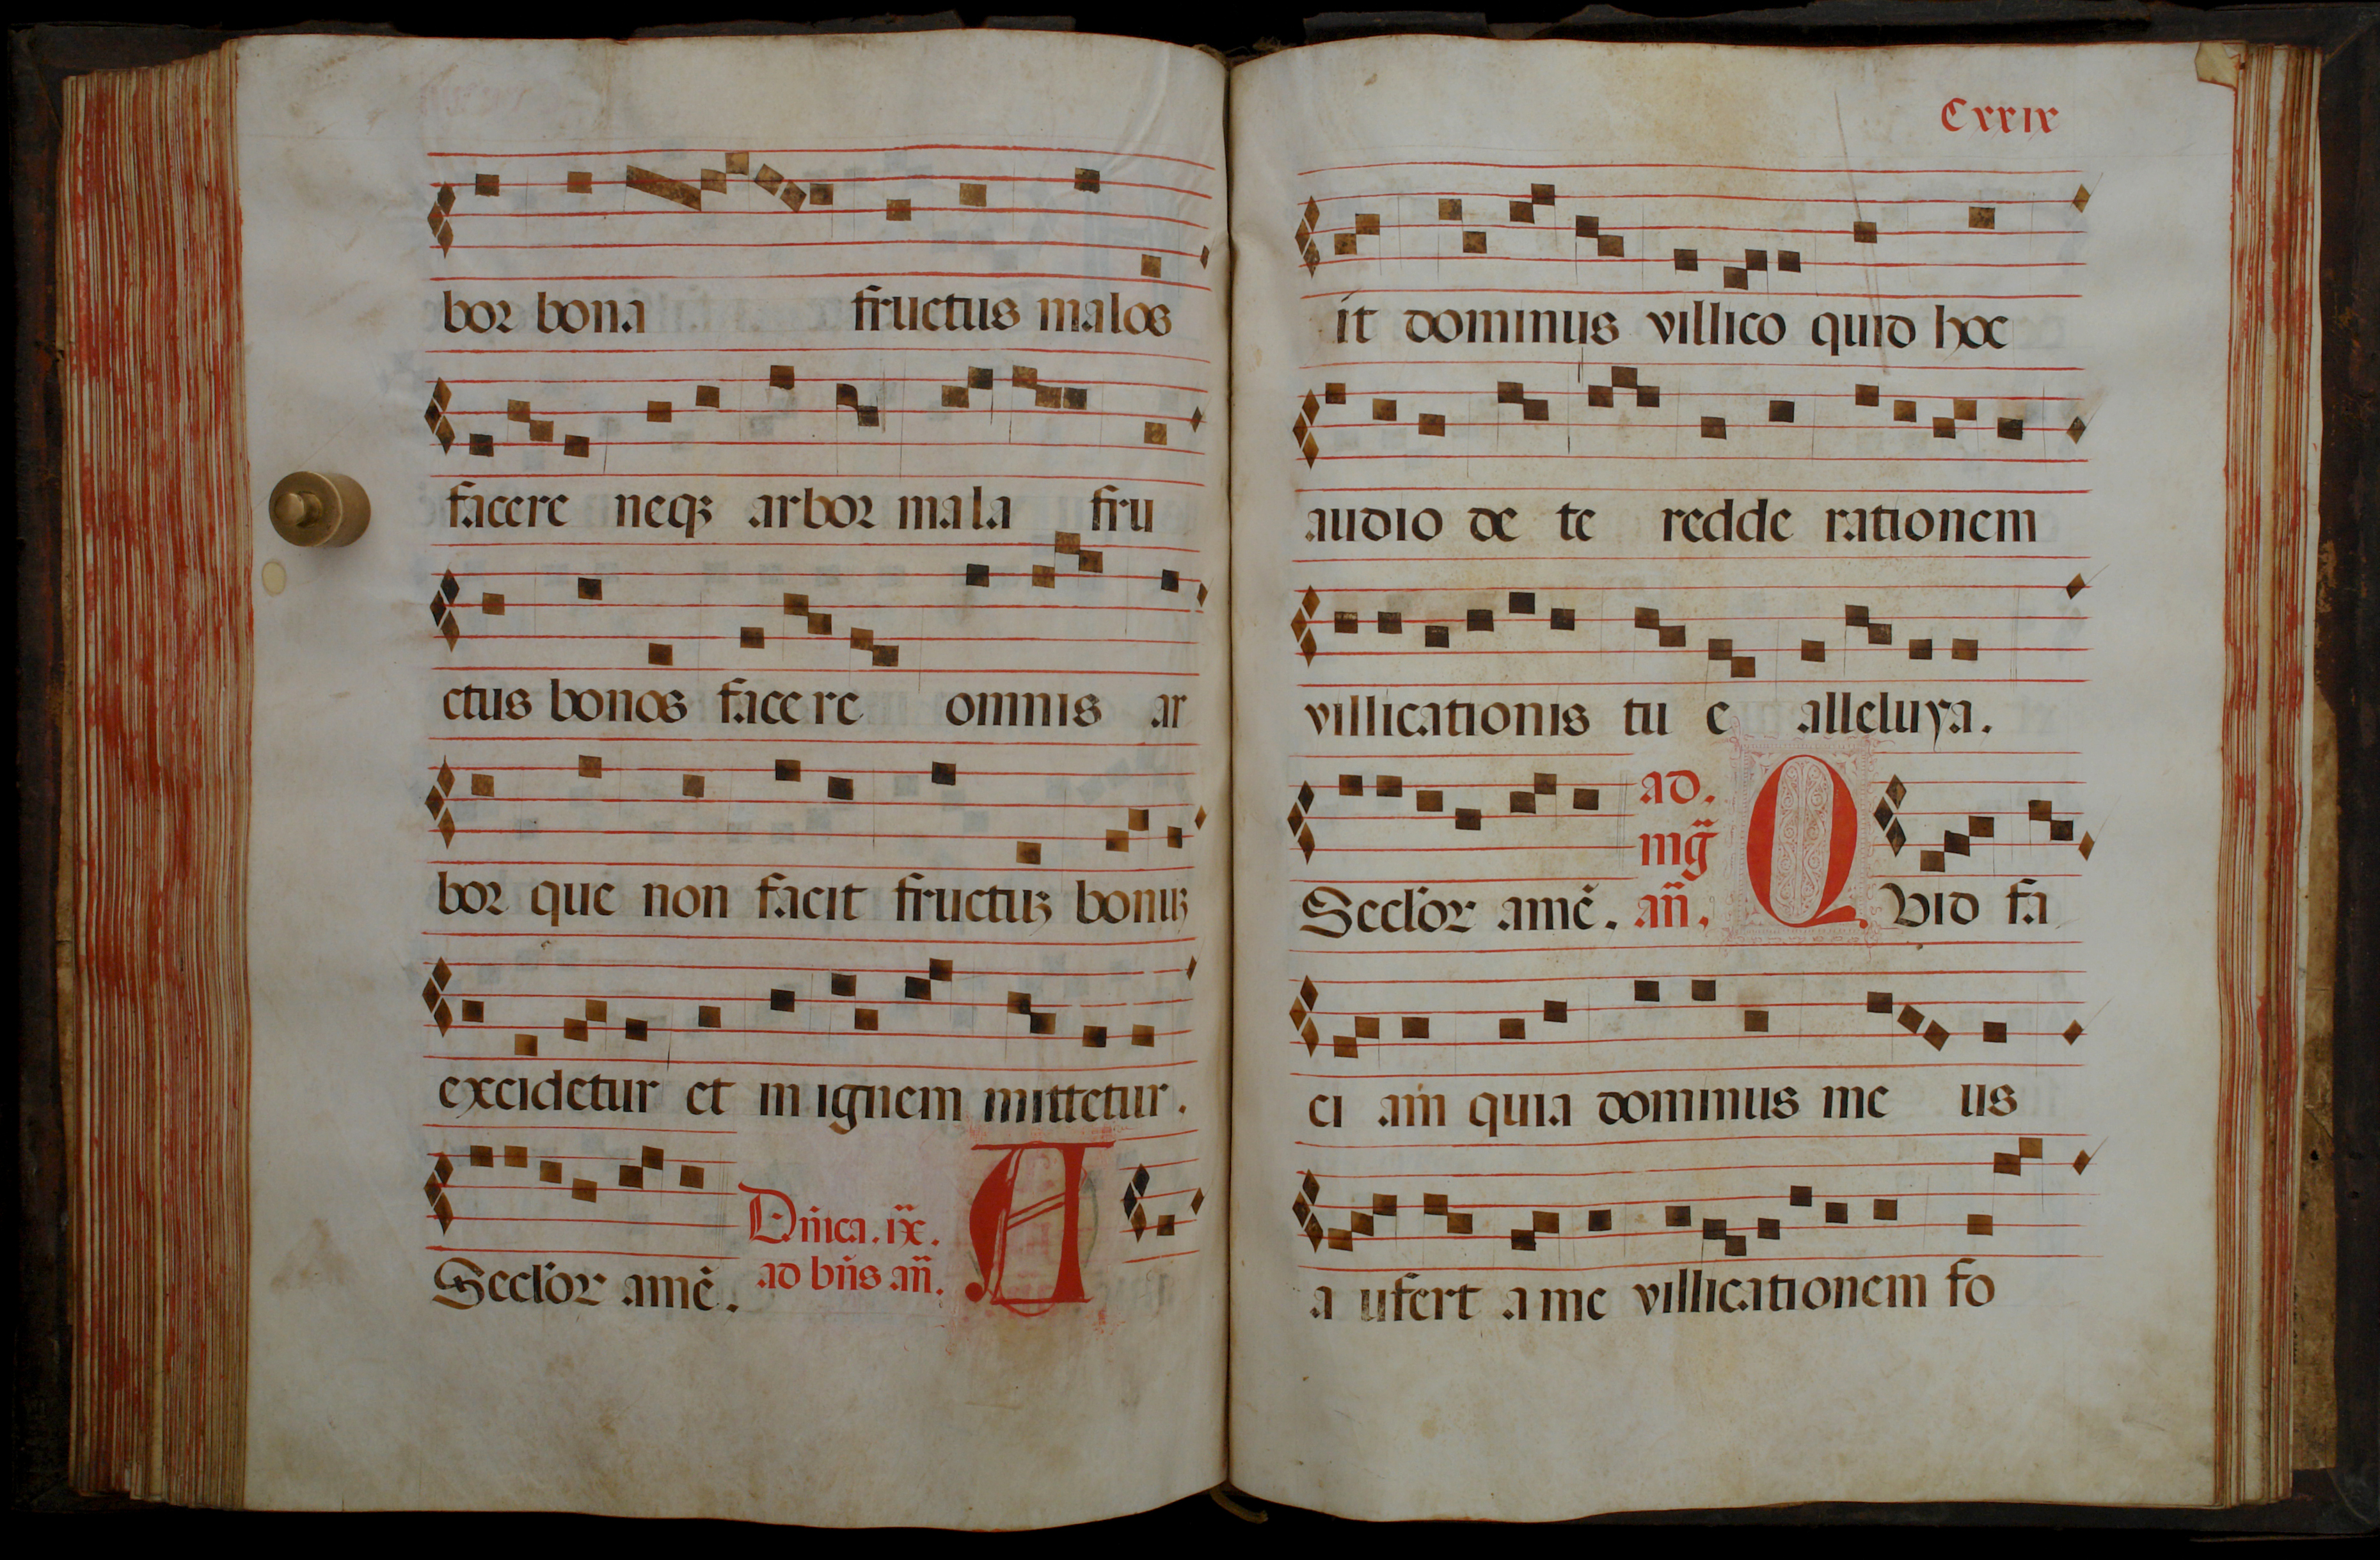 bor bona fructus malos
facere neqꝫ arbor mala fru
ctus bonos facere omnis ar
bor que non facit fructuꝫ bonuꝫ
excidetur et in ignem mittetur.
Seclor amē. Dñica. ix.
ad bñs añ. A
Cxxix
it dominus villico quid hoc
audio de te redde rationem
villicationis tu e alleluya.
Seclor amē. ad. mg̃ añ. Q vid fa
ci am quia dominus me us
a ufert a me villicationem fo